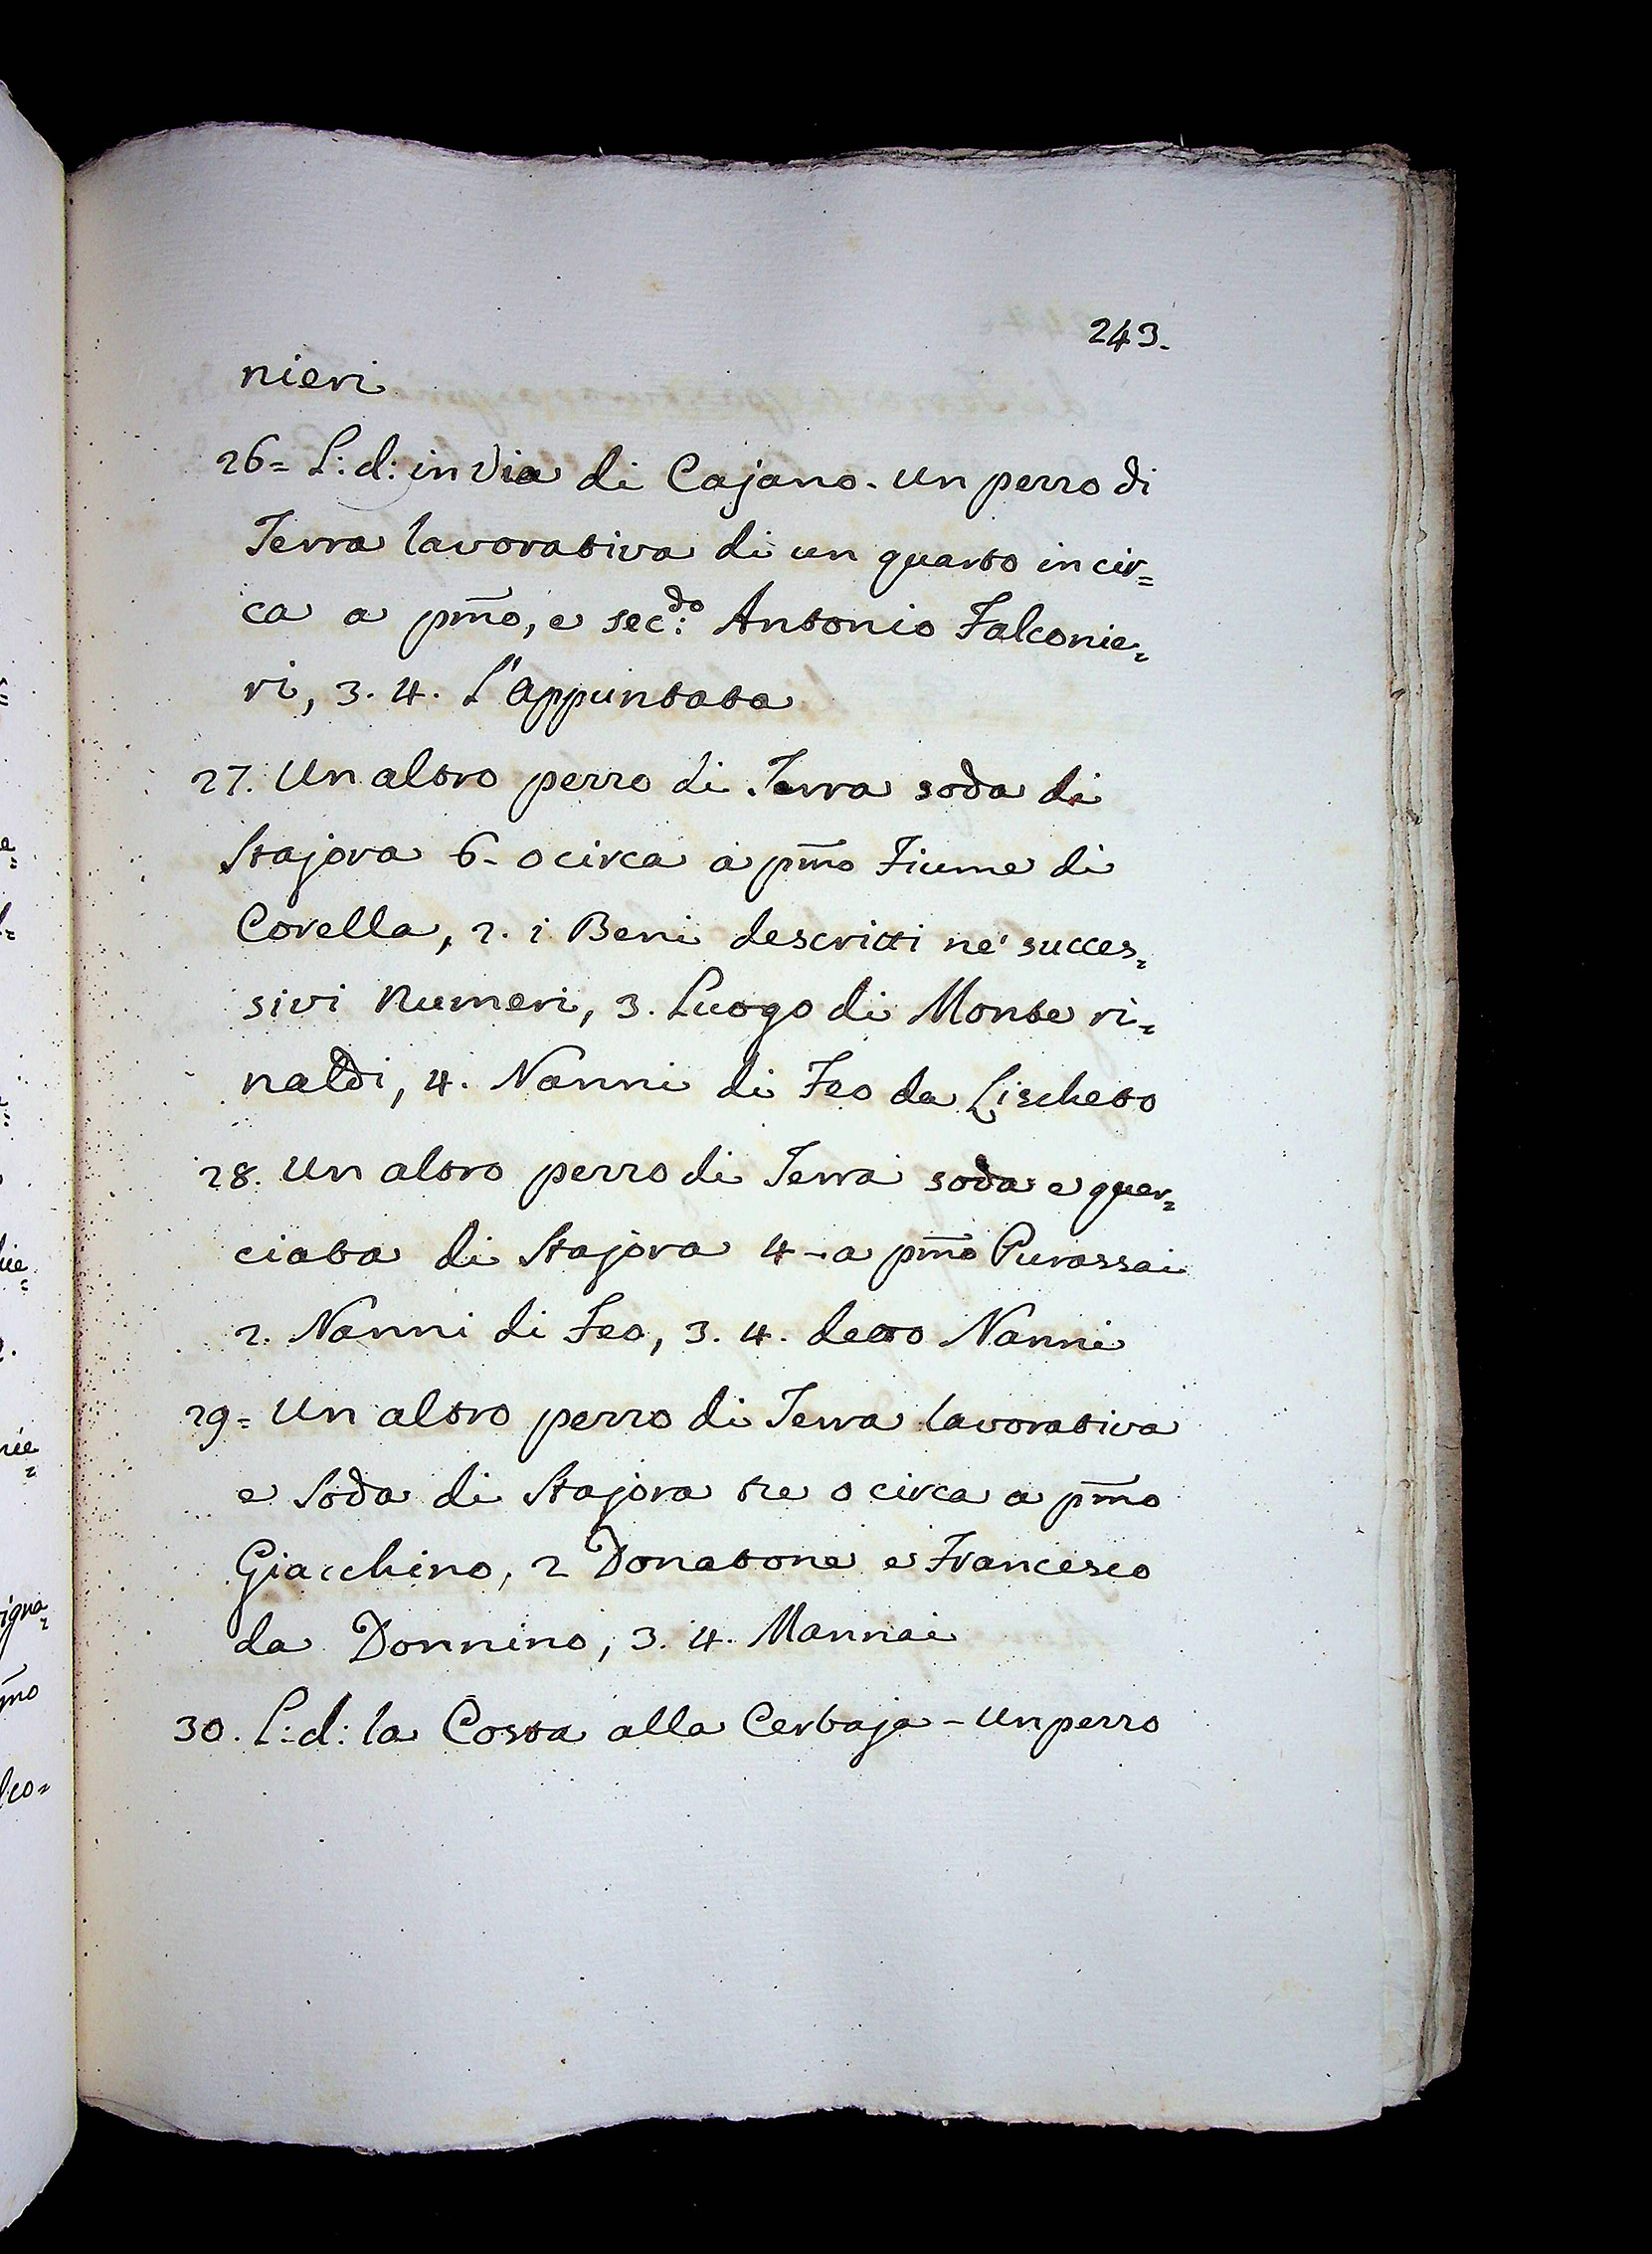 243.
nieri
26= L: d: in Via di Cajano. Un pezzo di
Terra lavorativa di un quarto in cir=
ca a pm̃o, e sec:do Antonio Falconie=
ri, 3. 4. L'Appuntata
27. Un altro pezzo di Terra soda di
Stajora 6- o circa a pm̃o Fiume di
Corella, 2. i Beni descritti ne' succes=
sivi Numeri, 3. Luogo di Monte ri=
naldi, 4. Nanni di Feo da Lischeto
28. Un altro pezzo di Terra soda e quer=
ciata di Stajora 4- a pm̃o Purassai
2. Nanni di Feo, 3. 4. detto Nanni
29= Un altro pezzo di Terra lavorativa
e Soda di Stajora tre o circa a pm̃o
Giacchino, 2 Donatone e Francesco
da Donnino, 3. 4. Mannai
30. L: d: la Costa alla Cerbaja - Un pezzo